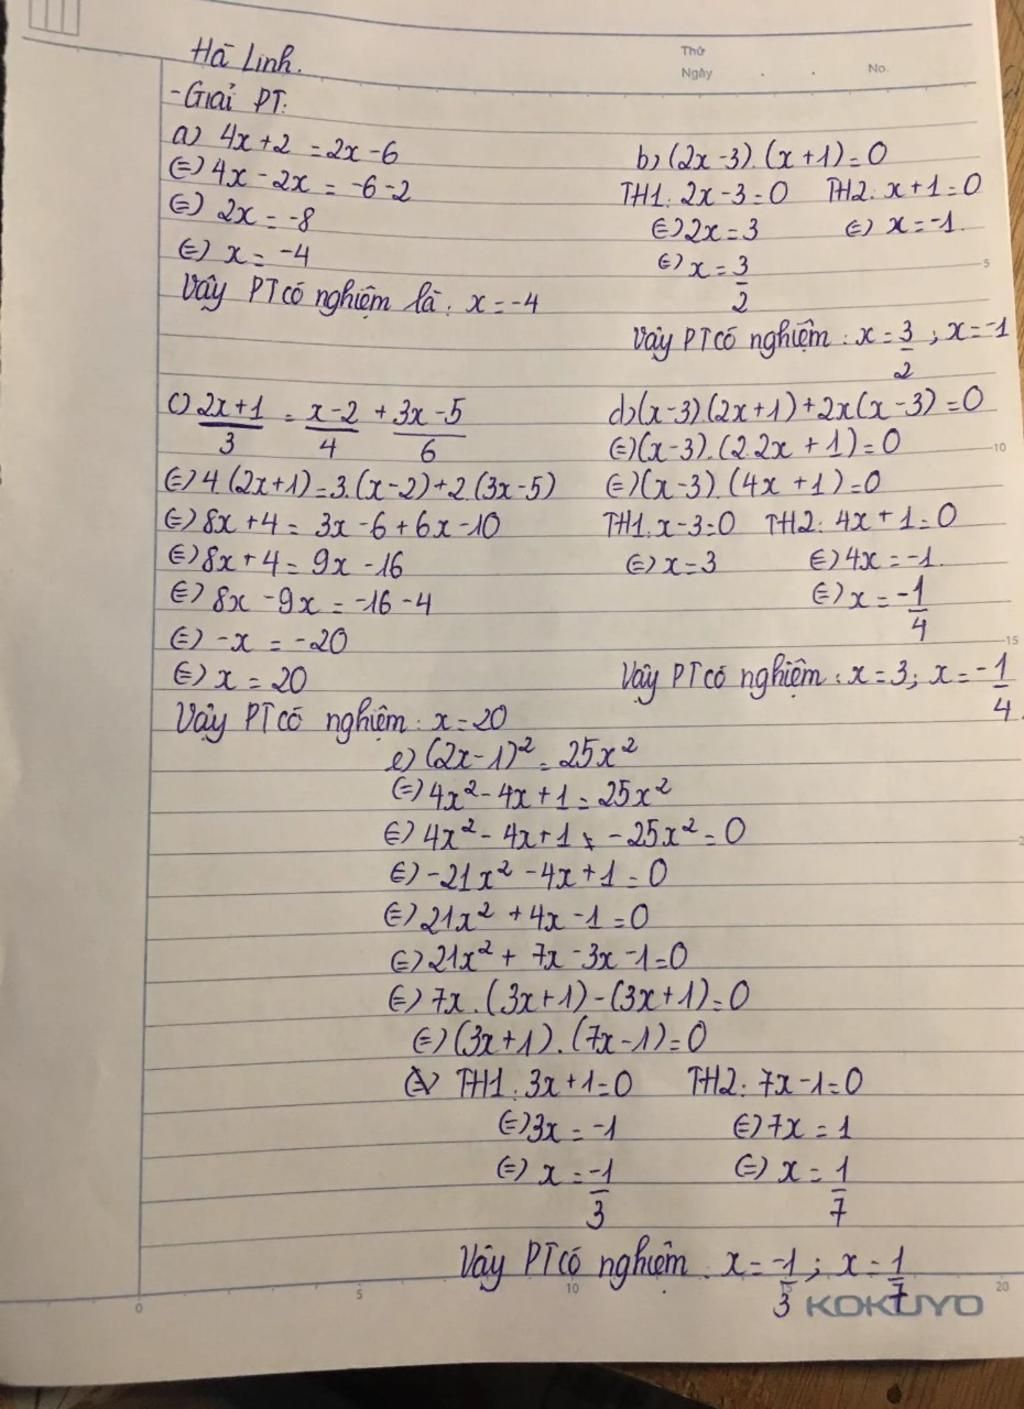 Thứ
Hà Linh.
Ngày . . No.
- Giải PT:
a) 4x+2 = 2x-6
(=) 4x - 2x = -6-2
(=) 2x = -8
(=) x = -4
Vậy PT có nghiệm là: x = -4
b) (2x-3).(x+1)=0
TH1: 2x-3=0 TH2: x+1=0
(=) 2x=3 (=) x=-1.
(=) x=3/2
5
Vậy PT có nghiệm: x=3/2; x=-1
c) (2x+1)/3 = (x-2)/4 + (3x-5)/6
(=) 4.(2x+1)=3.(x-2)+2.(3x-5)
(=) 8x+4 = 3x-6+6x-10
(=) 8x+4 = 9x-16
(=) 8x-9x = -16-4
(=) -x = -20
(=) x = 20
Vậy PT có nghiệm: x=20
d) (x-3).(2x+1)+2x(x-3)=0
(=) (x-3).(2.2x+1)=0
10
(=) (x-3).(4x+1)=0
TH1: x-3=0 TH2: 4x+1=0
(=) x=3 (=) 4x=-1.
(=) x=-1/4
15
Vậy PT có nghiệm: x=3; x=-1/4.
e) (2x-1)²=25x²
(=) 4x²-4x+1=25x²
(=) 4x²-4x+1 -25x²=0
(=) -21x²-4x+1=0
(=) 21x²+4x-1=0
(=) 21x²+7x-3x-1=0
(=) 7x.(3x+1)-(3x+1)=0
(=) (3x+1).(7x-1)=0
TH1: 3x+1=0 TH2: 7x-1=0
(=) 3x=-1 (=) 7x=1
(=) x=-1/3 (=) x=1/7
Vậy PT có nghiệm: x=-1/3; x=1/7
0 5 10 15 20
KOKUYO